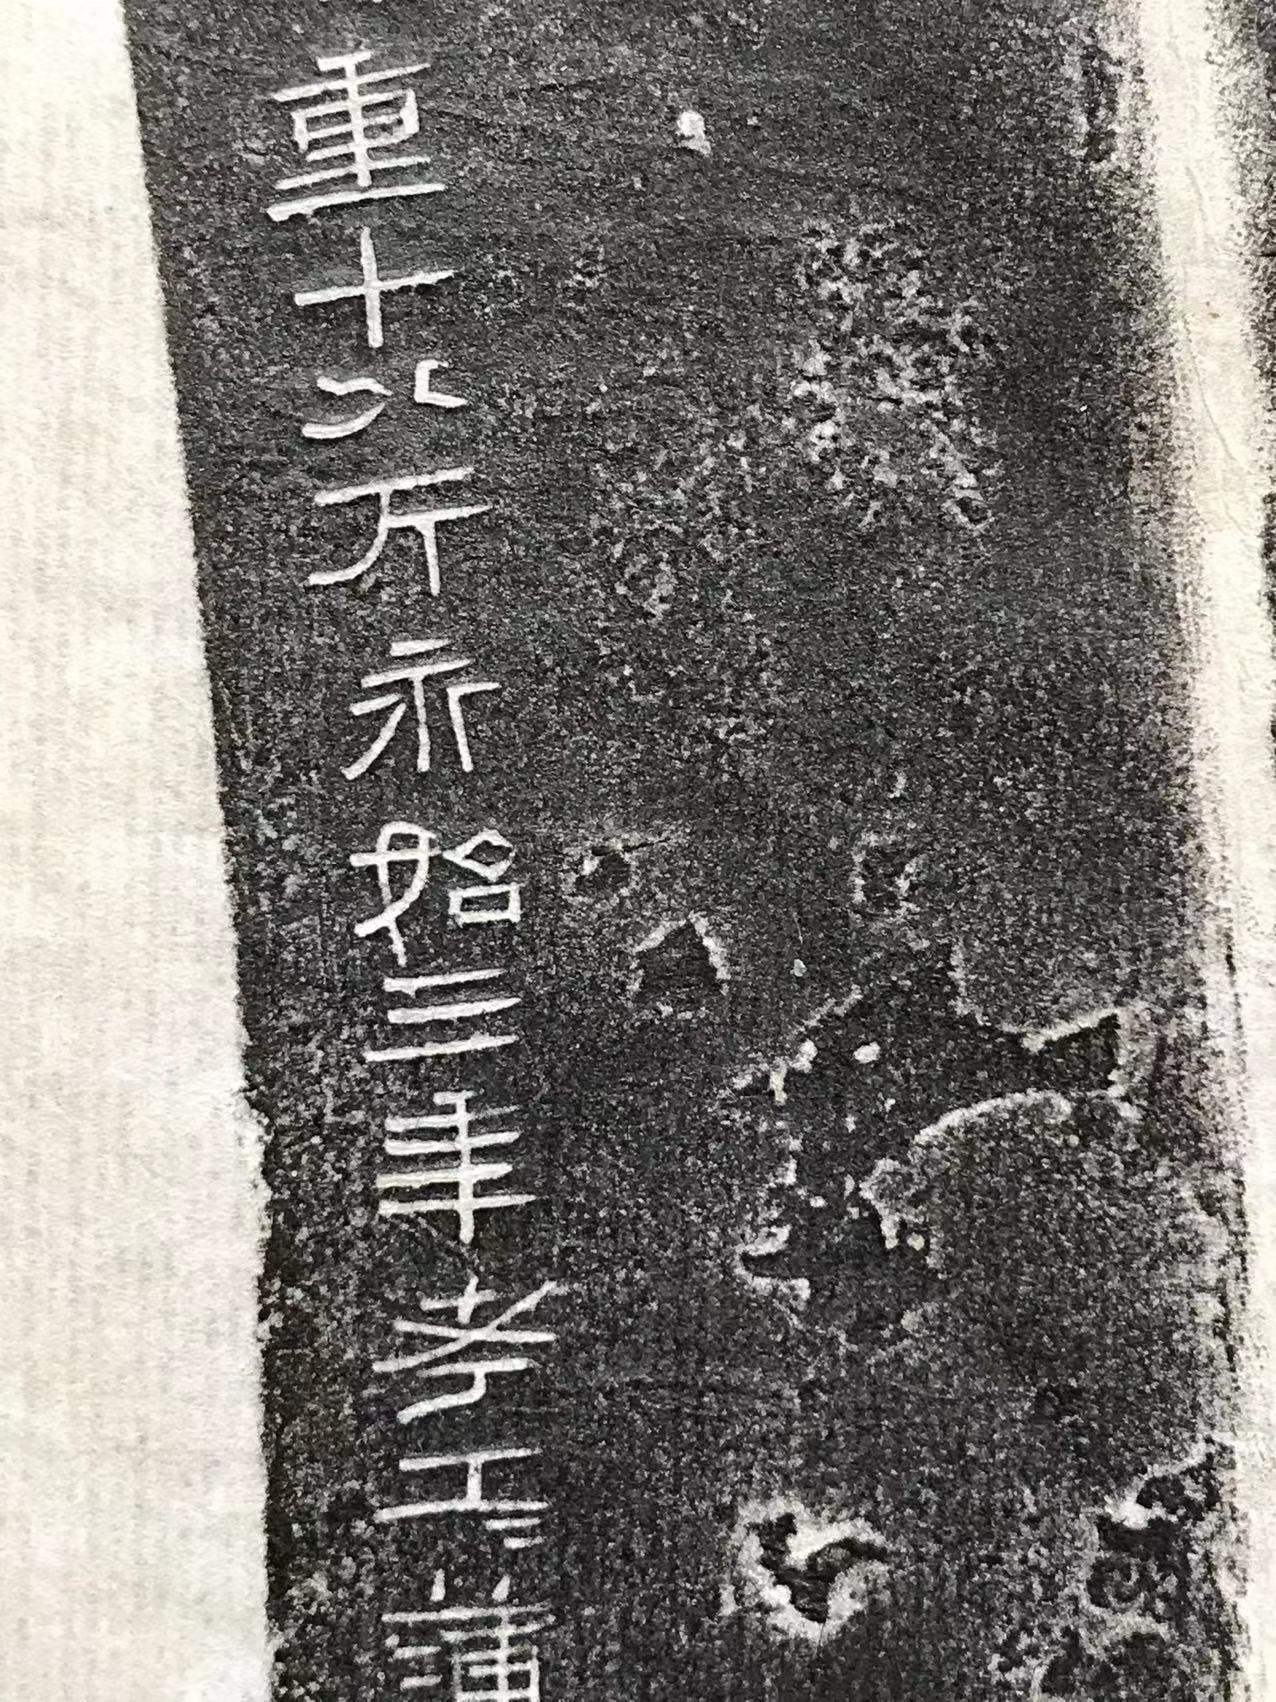 重十八斤永始三年考工=蒲